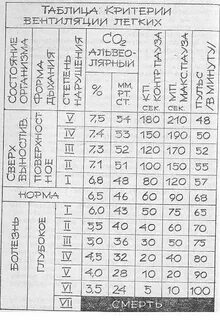 ТАБЛИЦА КРИТЕРИИ
ВЕНТИЛЯЦИИ ЛЕГКИХ
СОСТОЯНИЕ ОРГАНИЗМА
ФОРМА ДЫХАНИЯ
СТЕПЕНЬ НАРУШЕНИЯ
CO2 АЛЬВЕО-ЛЯРНЫЙ
%
ММ. РТ. СТ.
КП КОНТР.ПАУЗА СЕК
МП МАКС.ПАУЗА СЕК
ПУЛЬС /В МИНУТУ/
СВЕРХ ВЫНОСЛИВ.
ПОВЕРХНОСТНОЕ
V 7,5 54 180 210 48
IV 7,4 53 150 190 50
III 7.3 52 120 170 52
II 7.1 51 100 150 55
I 6,8 48 80 120 57
НОРМА 6,5 46 60 90 68
БОЛЕЗНЬ
ГЛУБОКОЕ
I 6,0 43 50 75 65
II 5,5 40 40 60 70
III 5,0 36 30 50 75
IV 4,5 32 20 40 80
V 4,0 28 10 20 90
VI 3,5 24 5 10 100
VII СМЕРТЬ